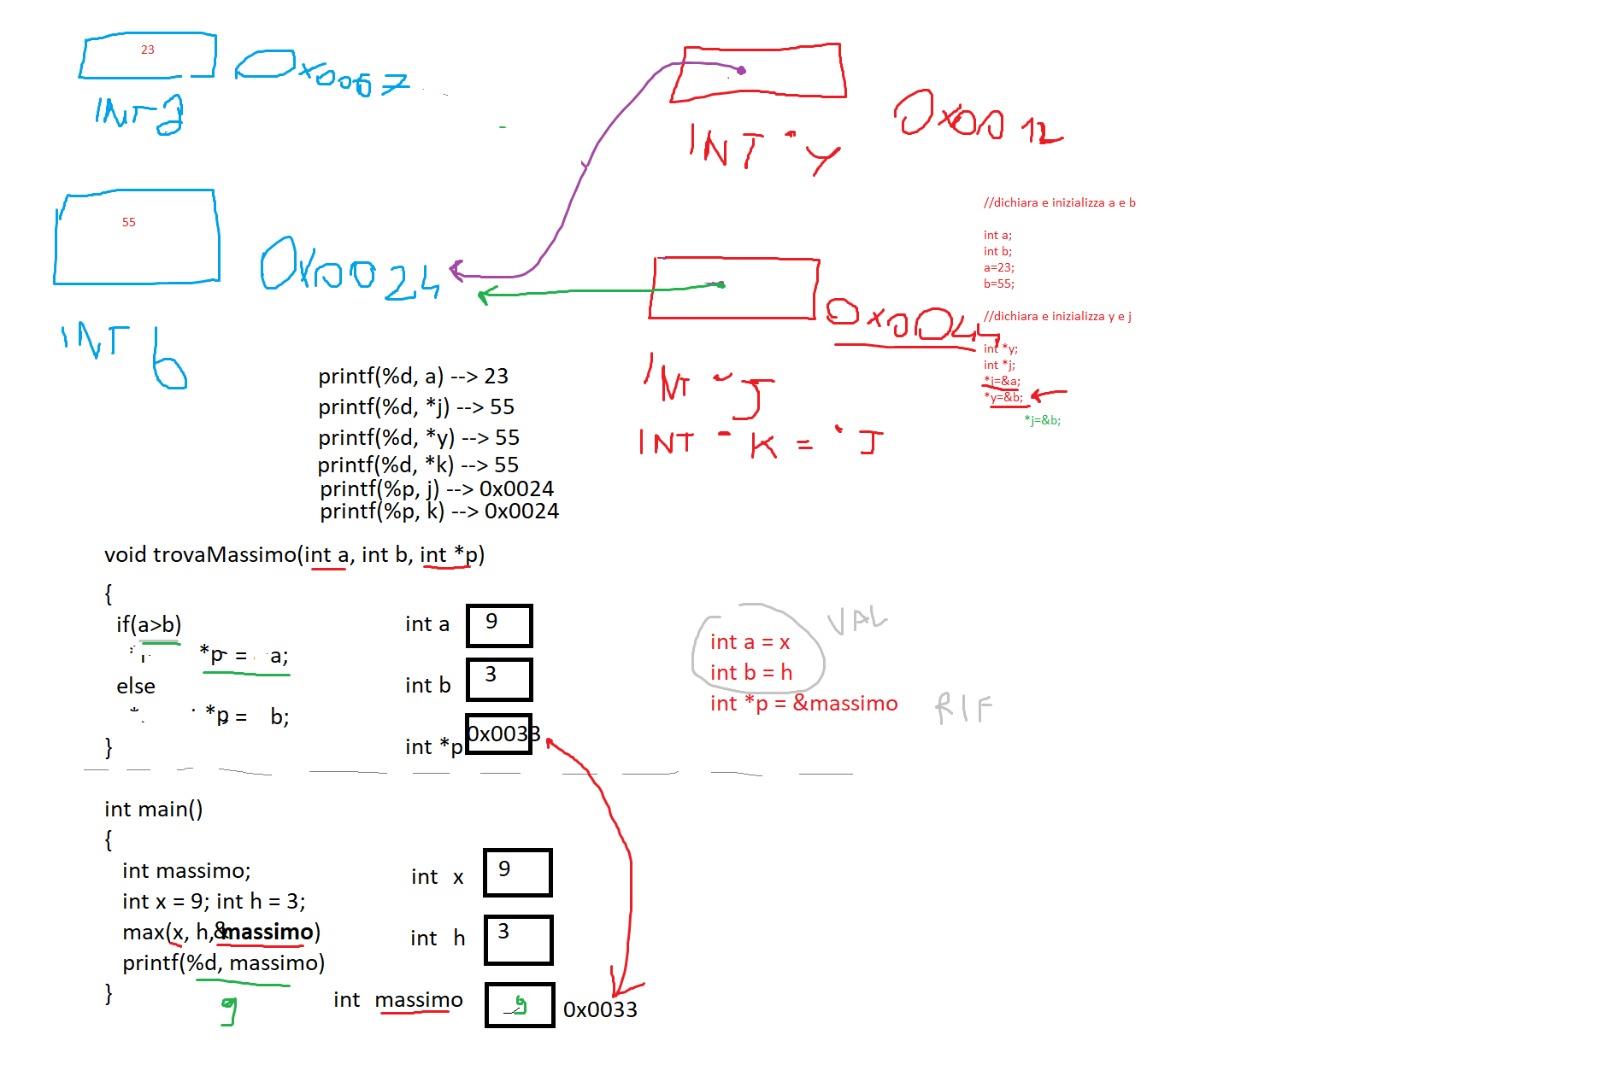 23
0x0067
INT a
INT *Y
0x0012
55
0x0024
INT b
//dichiara e inizializza a e b
int a;
int b;
a=23;
b=55;
//dichiara e inizializza y e j
int *y;
int *j;
*j=&a;
*y=&b;
*j=&b;
0x0044
INT *J
INT * K = * J
printf(%d, a) --> 23
printf(%d, *j) --> 55
printf(%d, *y) --> 55
printf(%d, *k) --> 55
printf(%p, j) --> 0x0024
printf(%p, k) --> 0x0024
void trovaMassimo(int a, int b, int *p)
{
if(a>b)
*p = a;
else
*p = b;
}
int a 9
int b 3
int *p 0x0033
int a = x
int b = h
VAL
int *p = &massimo
RIF
int main()
{
int massimo;
int x = 9; int h = 3;
max(x, h,&massimo)
printf(%d, massimo)
}
9
int x 9
int h 3
int massimo 9 0x0033